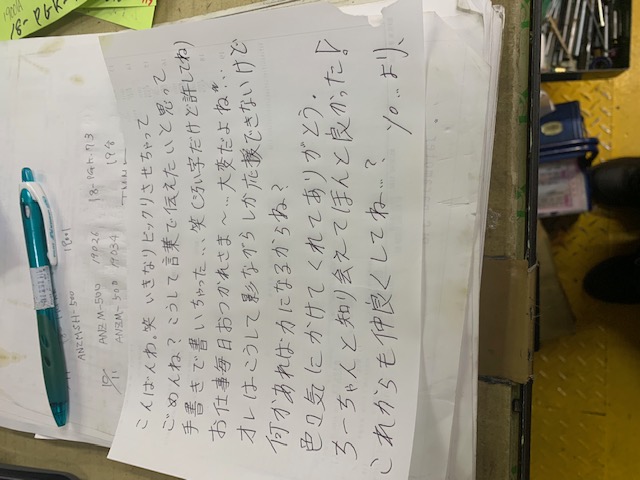 こんばんわ。笑 いきなりビックリさせちゃって
ごめんね? こうして言葉で伝えたいと思って
手書きで書いちゃった…笑 じるい字だけど許してね)
お仕事毎日おつかれさま〜…大変だよね…
オレはこうして影ながらしか応援できないけど
何かあれば力になるからね?
色々気にかけてくれてありがとう。
ちーちゃんと知り会えてほんと良かった!
これからも仲良くしてね…?
より、
ANZMSH-500
1801
ANZM-500 19026 18-PGH-M3
ANZM-500 19034 19.8
10/11